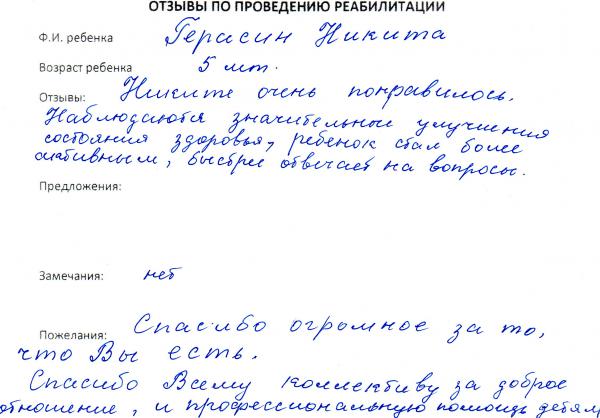 ОТЗЫВЫ ПО ПРОВЕДЕНИЮ РЕАБИЛИТАЦИИ
Ф.И. ребенка Герасин Никита
Возраст ребенка 5 лет.
Отзывы: Никите очень понравилось.
Наблюдаются значительные улучшения
состояния здоровья, ребенок стал более
активным, быстрее отвечает на вопросы.
Предложения:
Замечания: нет
Пожелания: Спасибо огромное за то,
что Вы есть.
Спасибо Всему коллективу за доброе
отношение, и профессиональную помощь детям